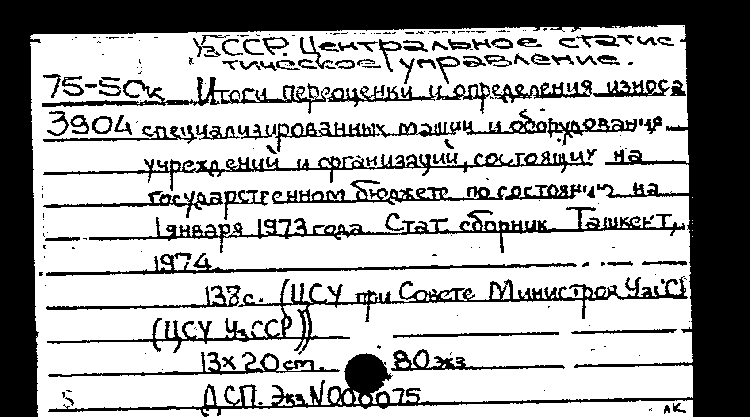 УзССР. Центральное статис-
тическое управление.
75-50к Итоги переоценки и определения износа
3904 специализированных машин и оборудования
учреждений и организаций, состоящих на
государственном бюджете по состоянию на
1 января 1973 года. Стат. сборник. Ташкент,
1974.
138 с. (ЦСУ при Совете Министров УзСС
(ЦСУ УзССР))
13х20 ст. 80 экз.
ДСП. Экз. N 000075.
АК